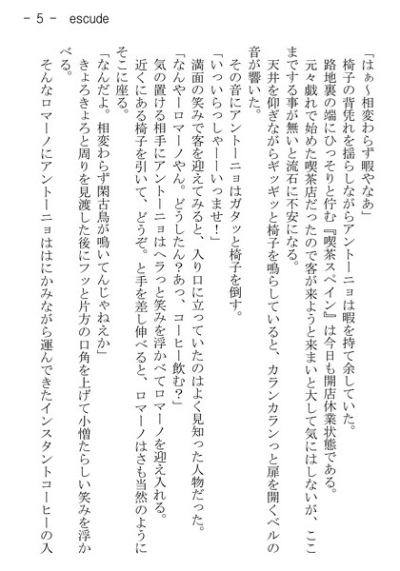 - 5 -　escude
「はぁ〜相変わらず暇やなあ」
　椅子の背凭れを揺らしながらアントーニョは暇を持て余していた。
　路地裏の端にひっそりと佇む『喫茶スペイン』は今日も開店休業状態である。
　元々戯れで始めた喫茶店だったので客が来ようと来まいと大して気にはしないが、ここ
までする事が無いと流石に不安になる。
　天井を仰ぎながらギッギッと椅子を鳴らしていると、カランカランっと扉を開くベルの
音が響いた。
　その音にアントーニョはガタッと椅子を倒す。
「いっいらっしゃーーいっませ！」
　満面の笑みで客を迎えてみると、入り口に立っていたのはよく見知った人物だった。
「なんやーロマーノやん。どうしたん？あっ、コーヒー飲む？」
　気の置ける相手にアントーニョはヘラっと笑みを浮かべてロマーノを迎え入れる。
　近くにある椅子を引いて、どうぞ。と手を差し伸べると、ロマーノはさも当然のように
そこに座る。
「なんだよ。相変わらず閑古鳥が鳴いてんじゃねえか」
　きょろきょろと周りを見渡した後にフッと片方の口角を上げて小憎たらしい笑みを浮か
べる。
　そんなロマーノにアントーニョははにかみながら運んできたインスタントコーヒーの入